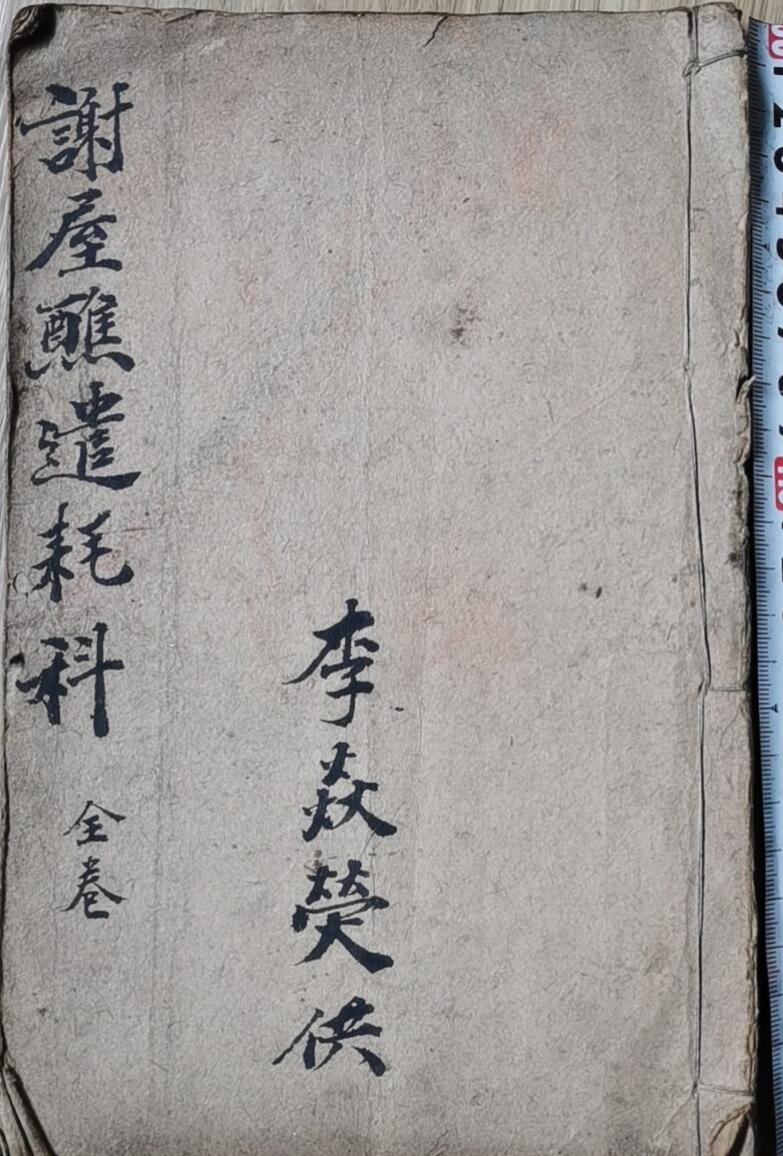 謝屋醮遣耗科 全卷
李焱熒供